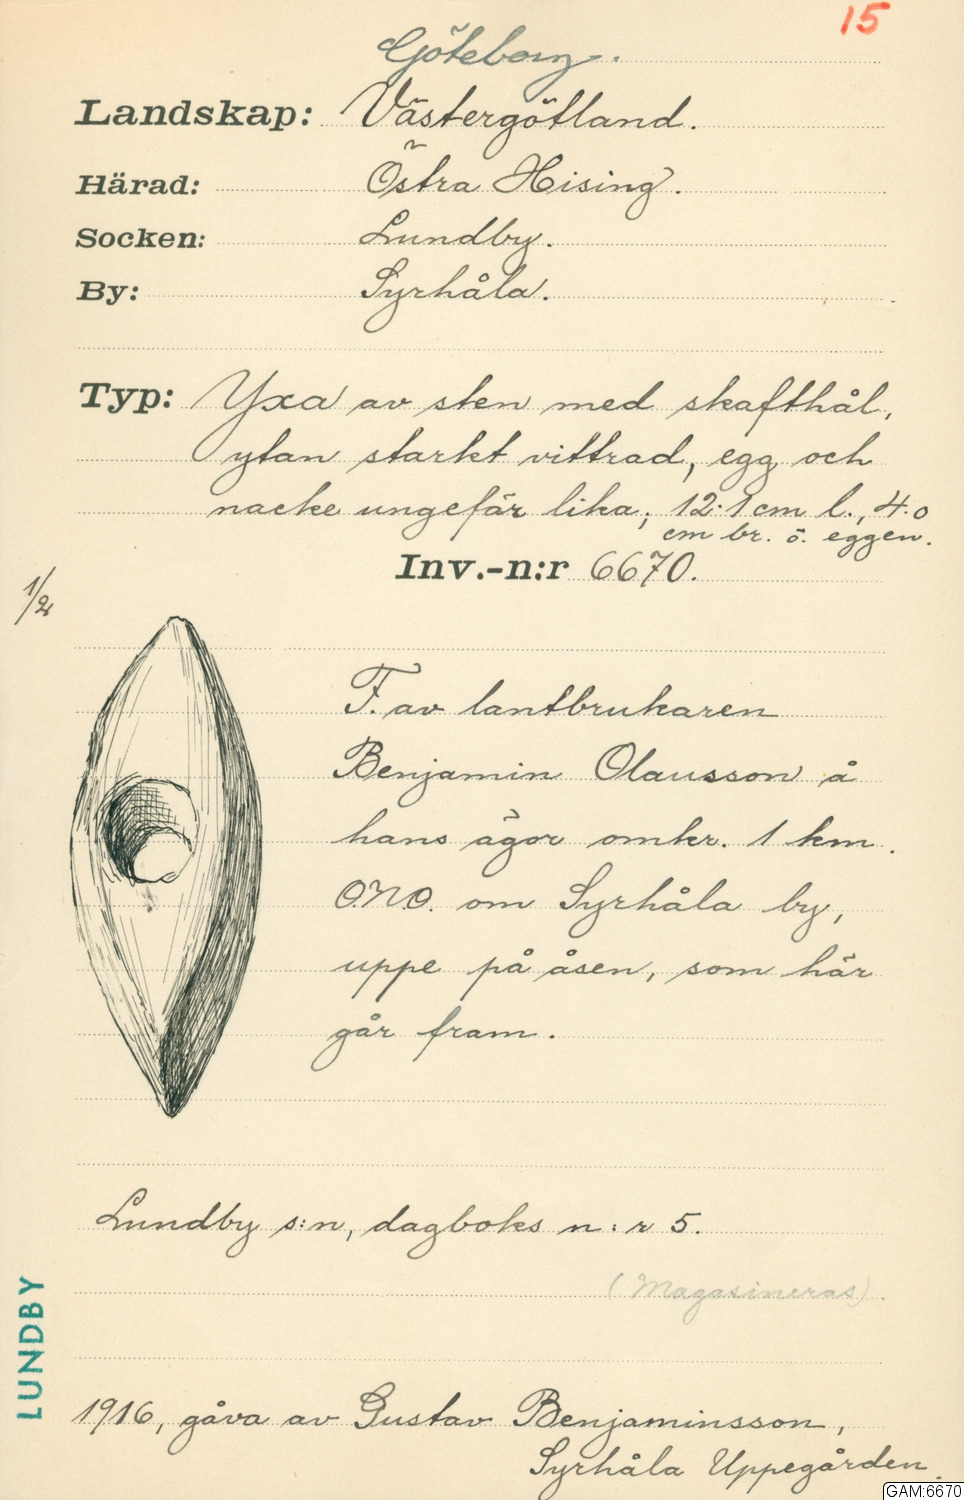 15
Göteborg.
Landskap: Västergötland.
Härad: Östra Hising.
Socken: Lundby.
By: Syrhåla.
Typ: Yxa av sten med skafthål,
ytan starkt vittrad, egg och
nacke ungefär lika; 12.1 cm l., 4.0
cm br. ö. eggen.
Inv.-n:r 6670.
1/2
F. av lantbrukaren
Benjamin Olausson å
hans ägor omkr. 1 km.
ONO. om Syrhåla by,
uppe på åsen, som här
går fram.
Lundby s:n, dagboks n:r 5.
(Magasineras).
LUNDBY
1916, gåva av Gustav Benjaminsson,
Syrhåla Uppegården.
GAM:6670